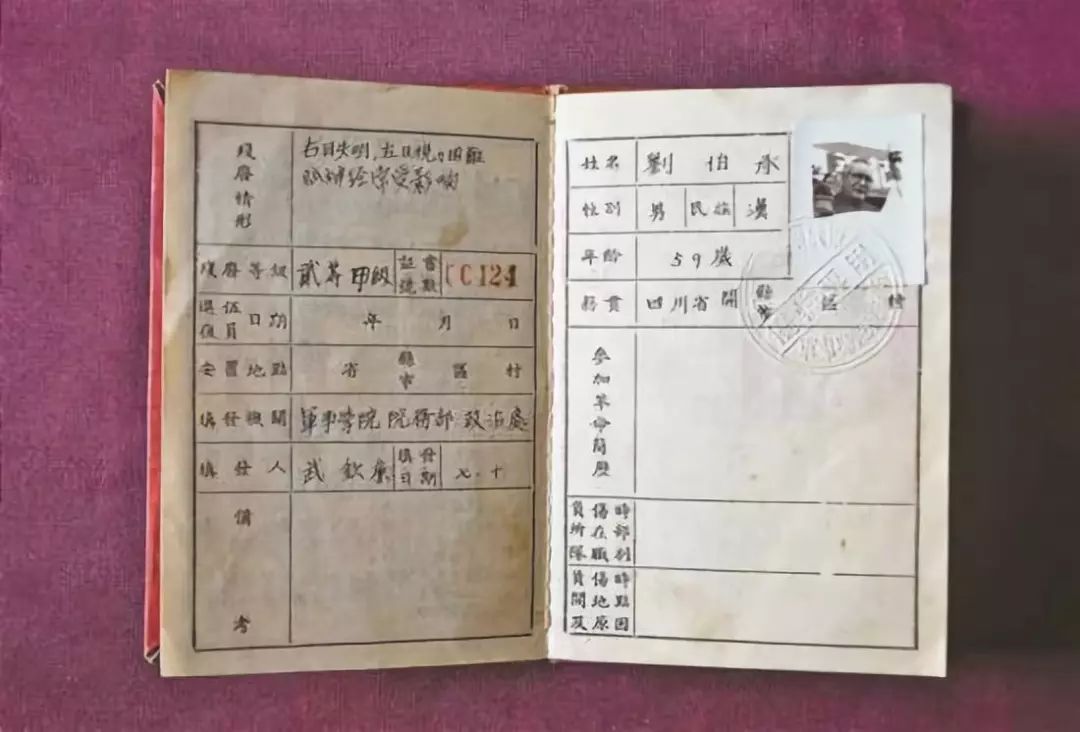 残廢情形 右目失明,左目視力困難
腦神經常受影响
殘廢等級 貳等甲級 証書號數 CC124
退伍復員日期 年 月 日
安置地點 省 縣市 區 村
填發機關 軍事学院院務部政治處
填發人 武 填發日期 七.十
備考
姓名 劉伯承
性别 男 民族 漢
年齡 59歲
籍貫 四川省開縣市 區 村
參加革命簡歷
負傷時所在部隊職别
負傷時間地點及原因